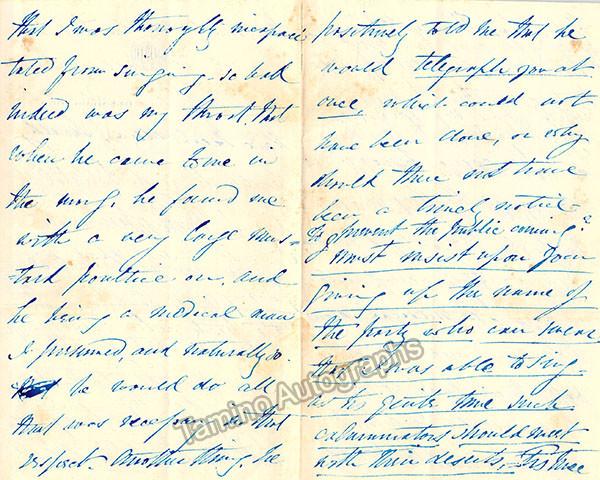 that I was thoroughly incapaci
tated from singing - so bad
indeed was my throat. That
when he came to me in
the morng. he found me
with a very large mus-
-tard poultice on, and
he being a medical man
I presumed, and naturally so.
he would do all
that was necessary in that
respect. Another thing, he
positively told me that he
would telegraph you at
once, which could not
have been done, or why
should there not have
been a timely notice
to prevent the public coming?
I must insist upon your
giving up the name of
the party who can swear
that I was able to sing.
It is quite time such
calumniators should meet
with their deserts,
Tamino Autographs